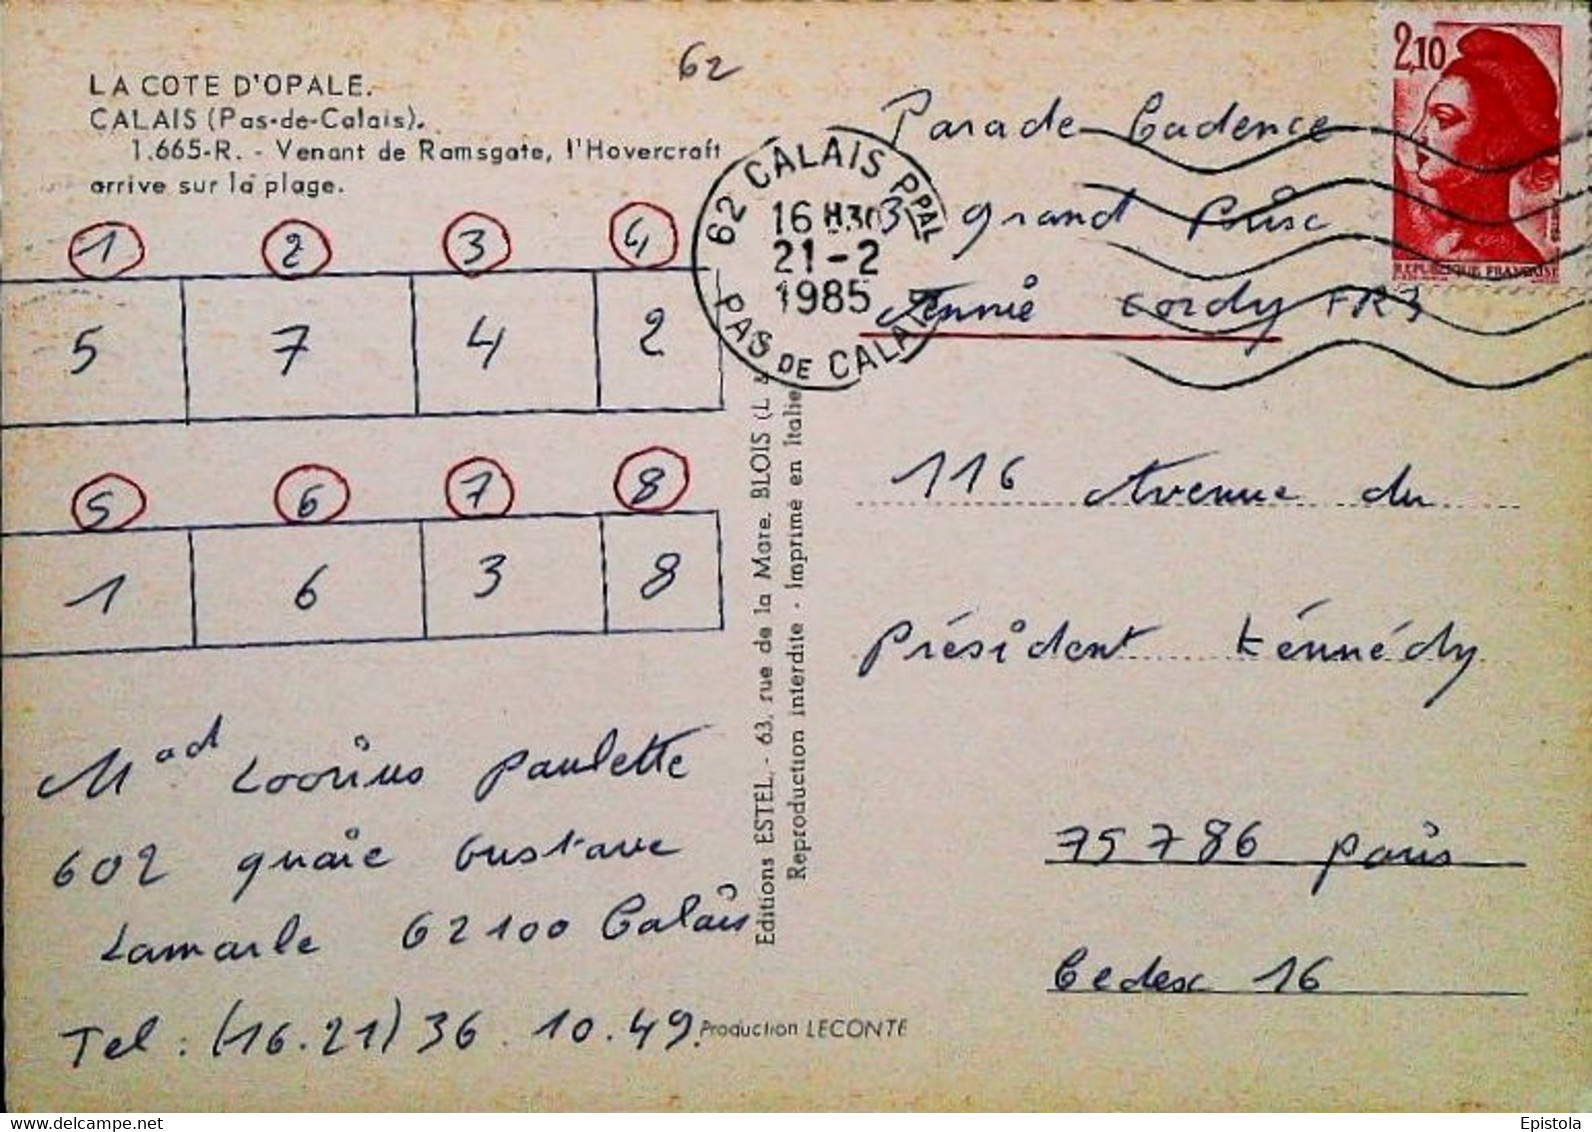 62
LA COTE D'OPALE.
CALAIS (Pas-de-Calais).
1.665-R. - Venant de Ramsgate, l'Hovercraft
arrive sur la plage.
1 2 3 4
5 7 4 2
5 6 7 8
1 6 3 8
Mad Loorius Paulette
602 quaie Gustave
Lamarle 62100 Calais
Tel : (16.21) 36.10.49.
Editions ESTEL, - 63, rue de la Mare, BLOIS (L &
Reproduction interdite - Imprimé en Italie
Production LECONTE
62 CALAIS PPAL
16 H30
21-2
1985
PAS DE CALAIS
2,10
REPUBLIQUE FRANÇAISE
Parade Cadence
3 grand Prise
Annie Cordy FR3
116 Avenue du
Président Kénnédy
75786 Paris
Cedex 16
Epistola
delcampe.net